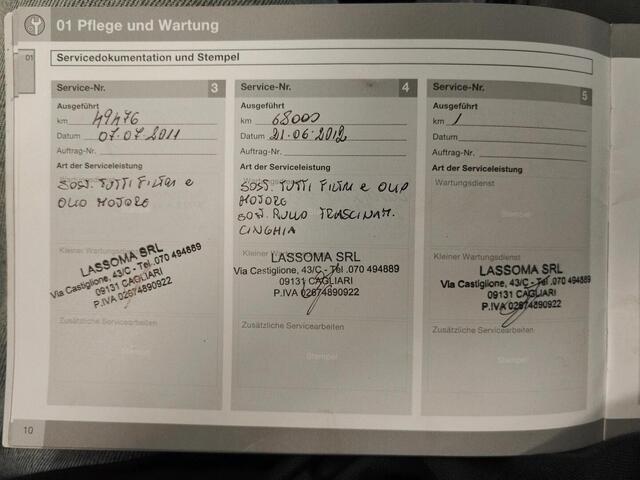 01 Pflege und Wartung
01
Servicedokumentation und Stempel
Service-Nr. 3
Ausgeführt
km 49476
Datum 07.07.2011
Auftrag-Nr.
Art der Serviceleistung
SOST. TUTTI FILTRI e
OLIO MOTORE
Kleiner Wartungsdienst
LASSOMA SRL
Via Castiglione, 43/C - Tel .070 494889
09131 CAGLIARI
P.IVA 02674890922
Zusätzliche Servicearbeiten
Stempel
Service-Nr. 4
Ausgeführt
km 68000
Datum 21.06.2012
Auftrag-Nr.
Art der Serviceleistung
SOST. TUTTI FILTRI e OLIO
MOTORE
SOST. RULLO TRASCINAM.
CINGHIA
Kleiner Wartungsdienst
LASSOMA SRL
Via Castiglione, 43/C - Tel .070 494889
09131 CAGLIARI
P.IVA 02674890922
Zusätzliche Servicearbeiten
Stempel
Service-Nr. 5
Ausgeführt
km 1
Datum
Auftrag-Nr.
Art der Serviceleistung
Wartungsdienst
Stempel
Kleiner Wartungsdienst
LASSOMA SRL
Via Castiglione, 43/C - Tel .070 494889
09131 CAGLIARI
P.IVA 02674890922
Zusätzliche Servicearbeiten
Stempel
10